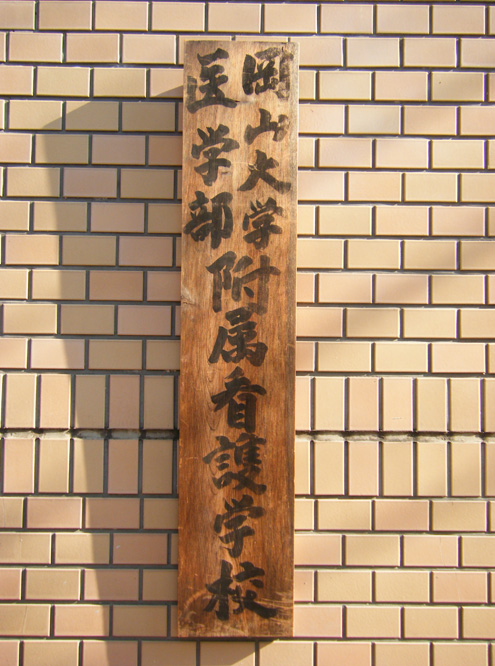 岡山大学
医学部
附属看護学校